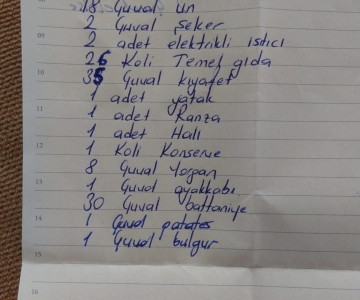 18 Çuval un
2 Çuval şeker
2 adet elektrikli ısıtıcı
26 Koli Temel gıda
35 Çuval kıyafet
1 adet yatak
1 adet Ranza
1 adet Halı
1 Koli Konserve
8 Çuval Yorgan
1 Çuval ayakkabı
30 Çuval battaniye
1 Çuval patates
1 Çuval bulgur
09
10
11
12
13
14
15
16